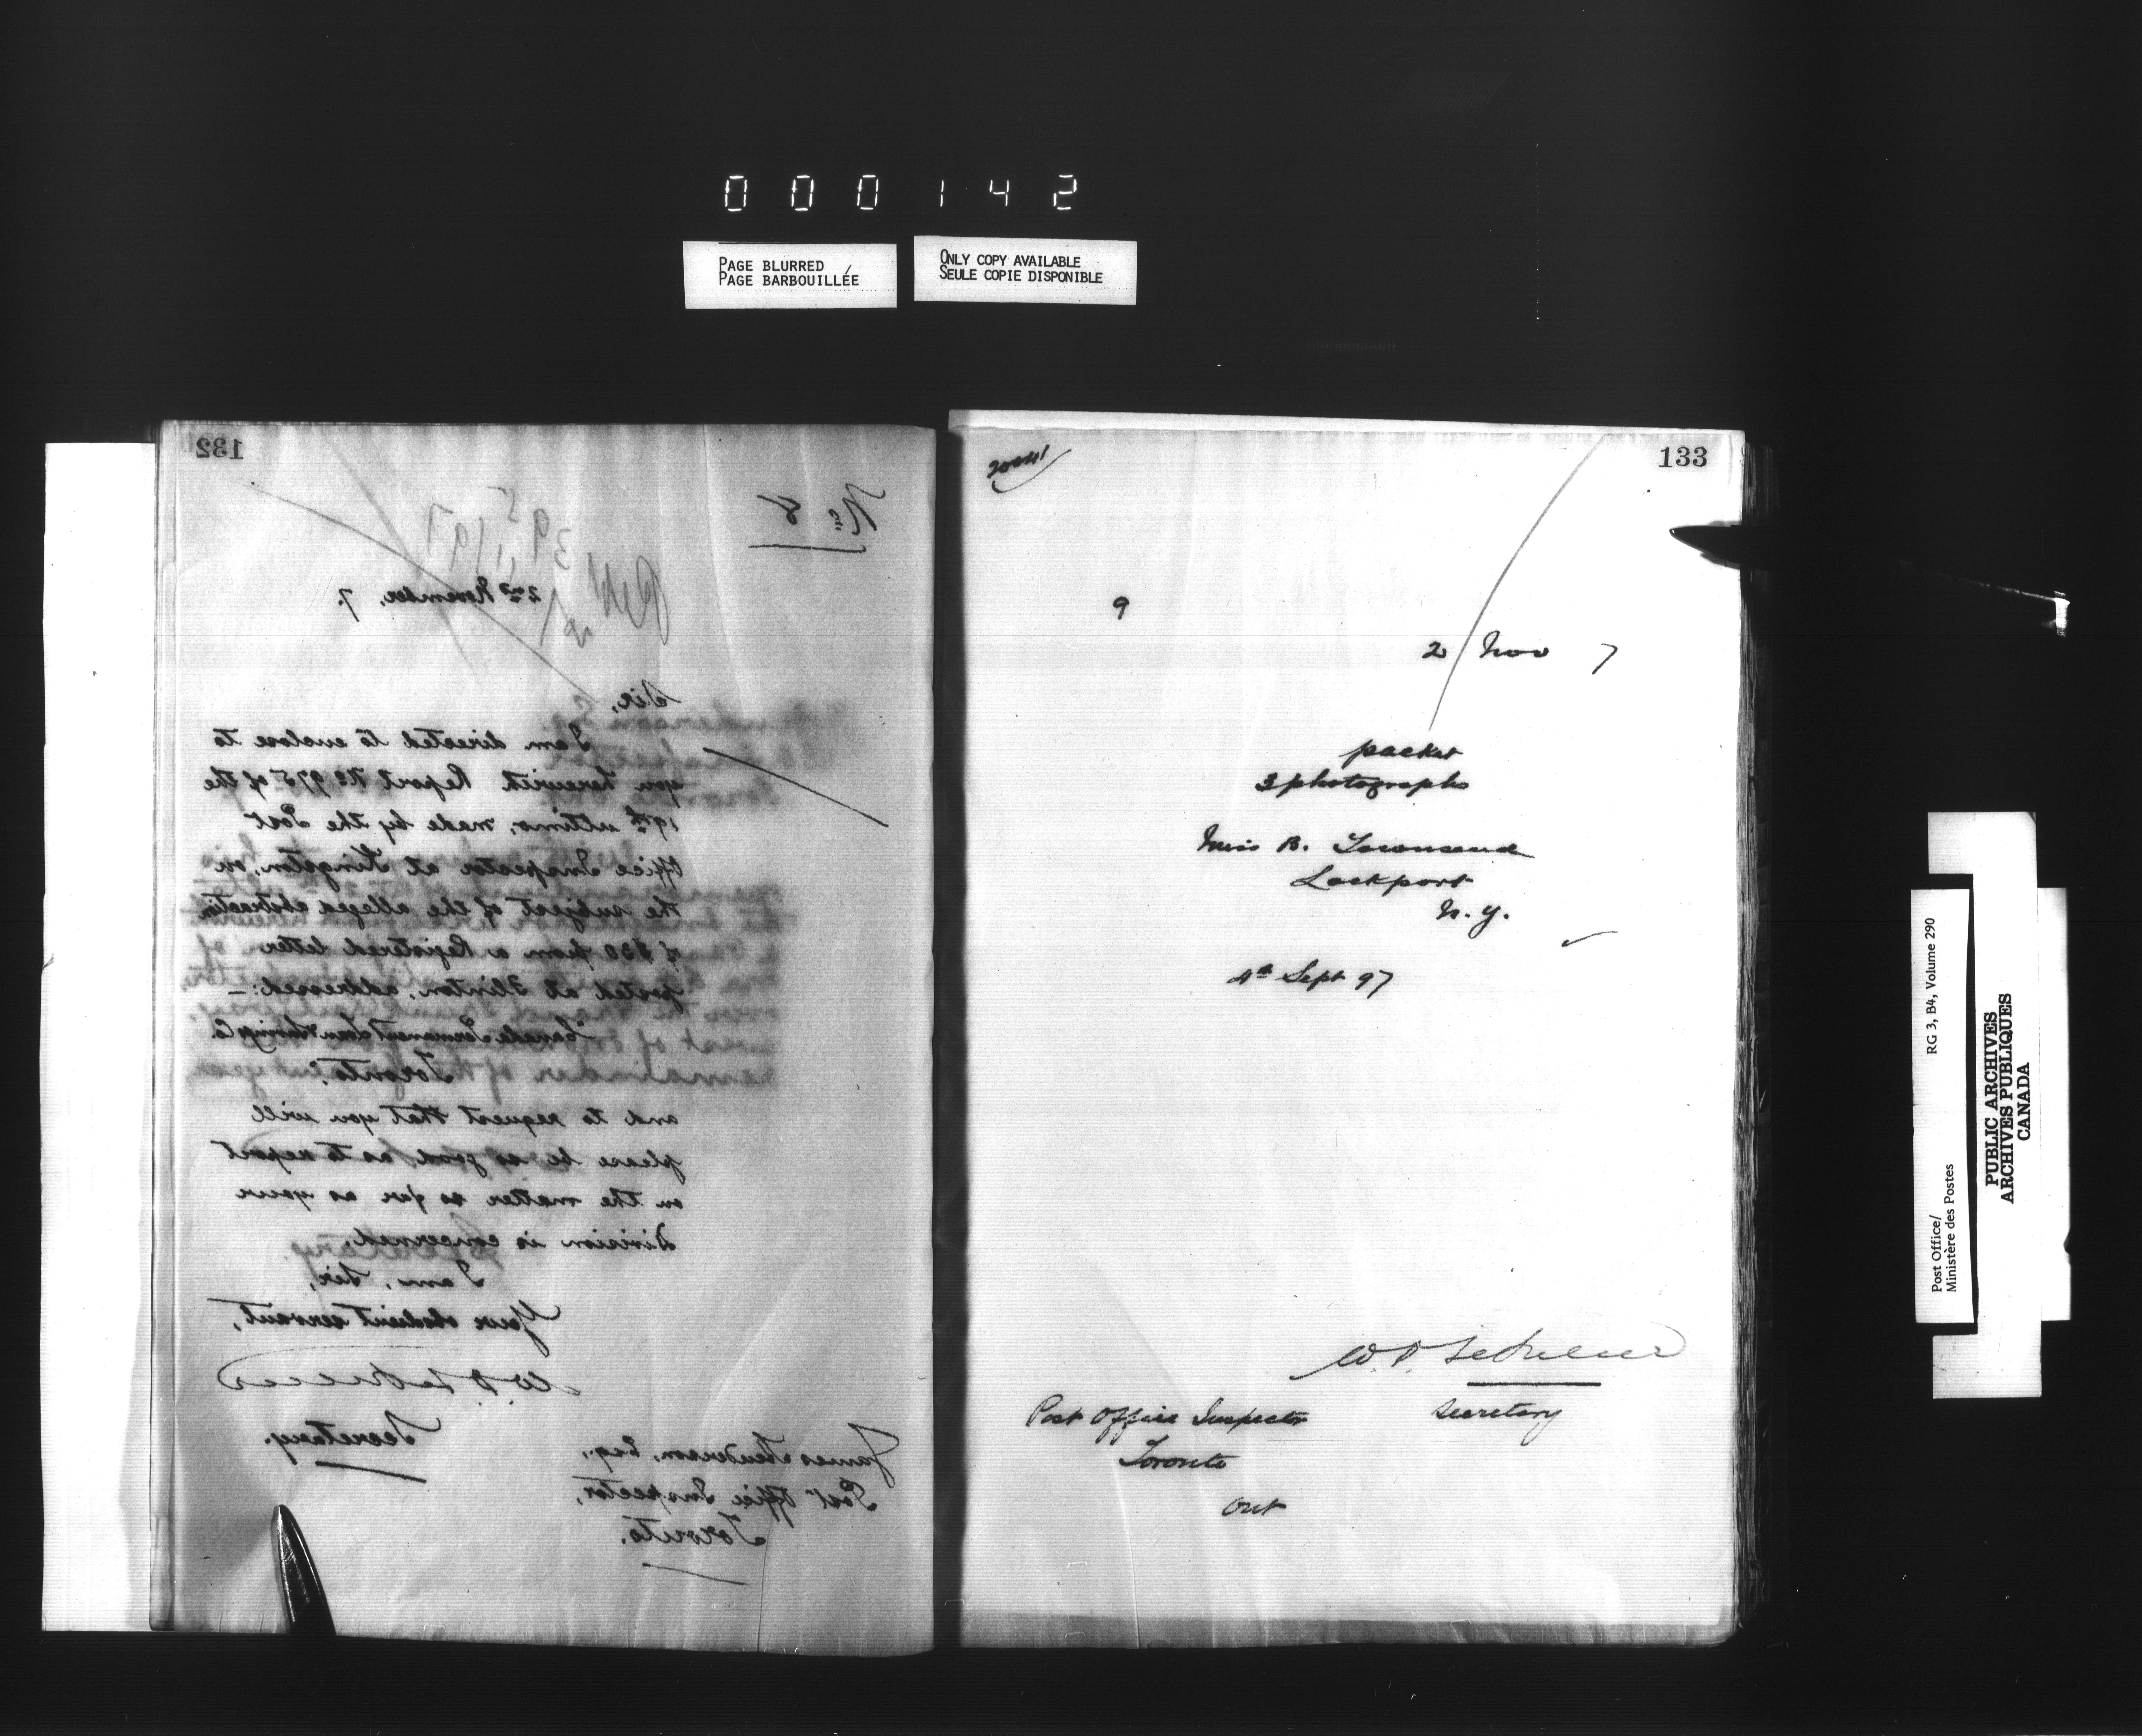 0 0 0 1 4 2
PAGE BLURRED
PAGE BARBOUILLÉE
ONLY COPY AVAILABLE
SEULE COPIE DISPONIBLE
132
No. 8
2nd November, 7.
Sir,
I am directed to enclose to
you herewith Report No 975 of the
19th ultimo, made by the Post
Office Inspector at Kingston, on
the subject of the alleged abstraction
of $30 from a Registered letter
posted at Flinton, addressed:-
"Canada Permanent Loan & Savings Co.
Toronto."
and to request that you will
please be so good as to report
on the matter so far as your
division is concerned.
I am, Sir,
Your obedient servant,
Secretary.
James Henderson, Esq.,
Post Office Inspector,
Toronto.
133
9
2 Nov 7
packet
3 photographs
Miss B. Townsend
Lockport
N. Y.
4th Sept 97
Secretary
Post Office Inspector
Toronto
Ont
Post Office/
Ministère des Postes
RG 3, B4, Volume 290
PUBLIC ARCHIVES
ARCHIVES PUBLIQUES
CANADA